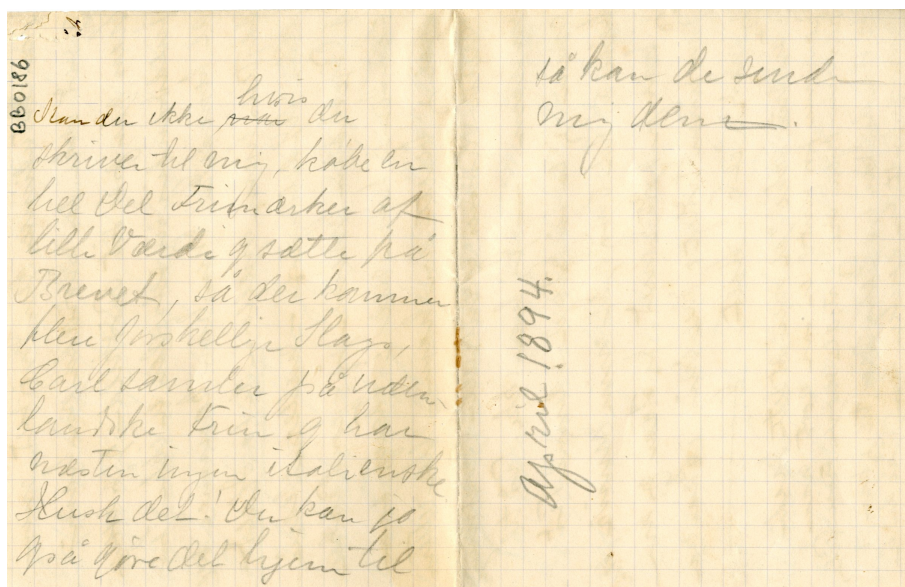 BB0186
Kan du ikke hvis du
skriver til mig, købe en
hel Del Frimærker af
lille Værdi og sætte på
Brevet, så der kommer
flere forskellige Slags,
Carl samler på uden-
landske Frim og har
næsten ingen italienske
Husk det! Du kan jo
også gøre det hjem til
så kan de sende
mig dem.
April 1894.